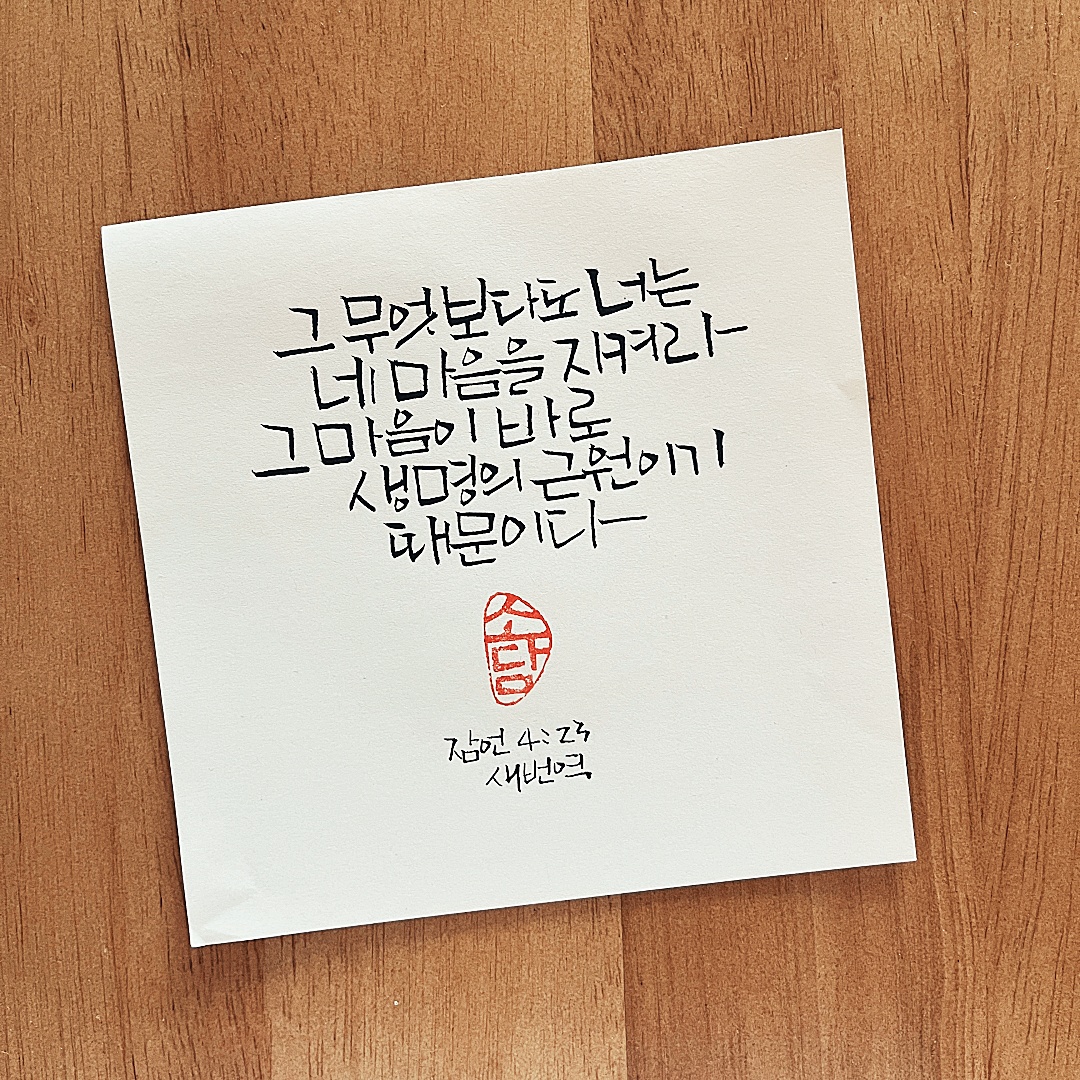 그 무엇보다도 너는
네 마음을 지켜라
그 마음이 바로
생명의 근원이기
때문이다
소담
잠언 4:23
새번역